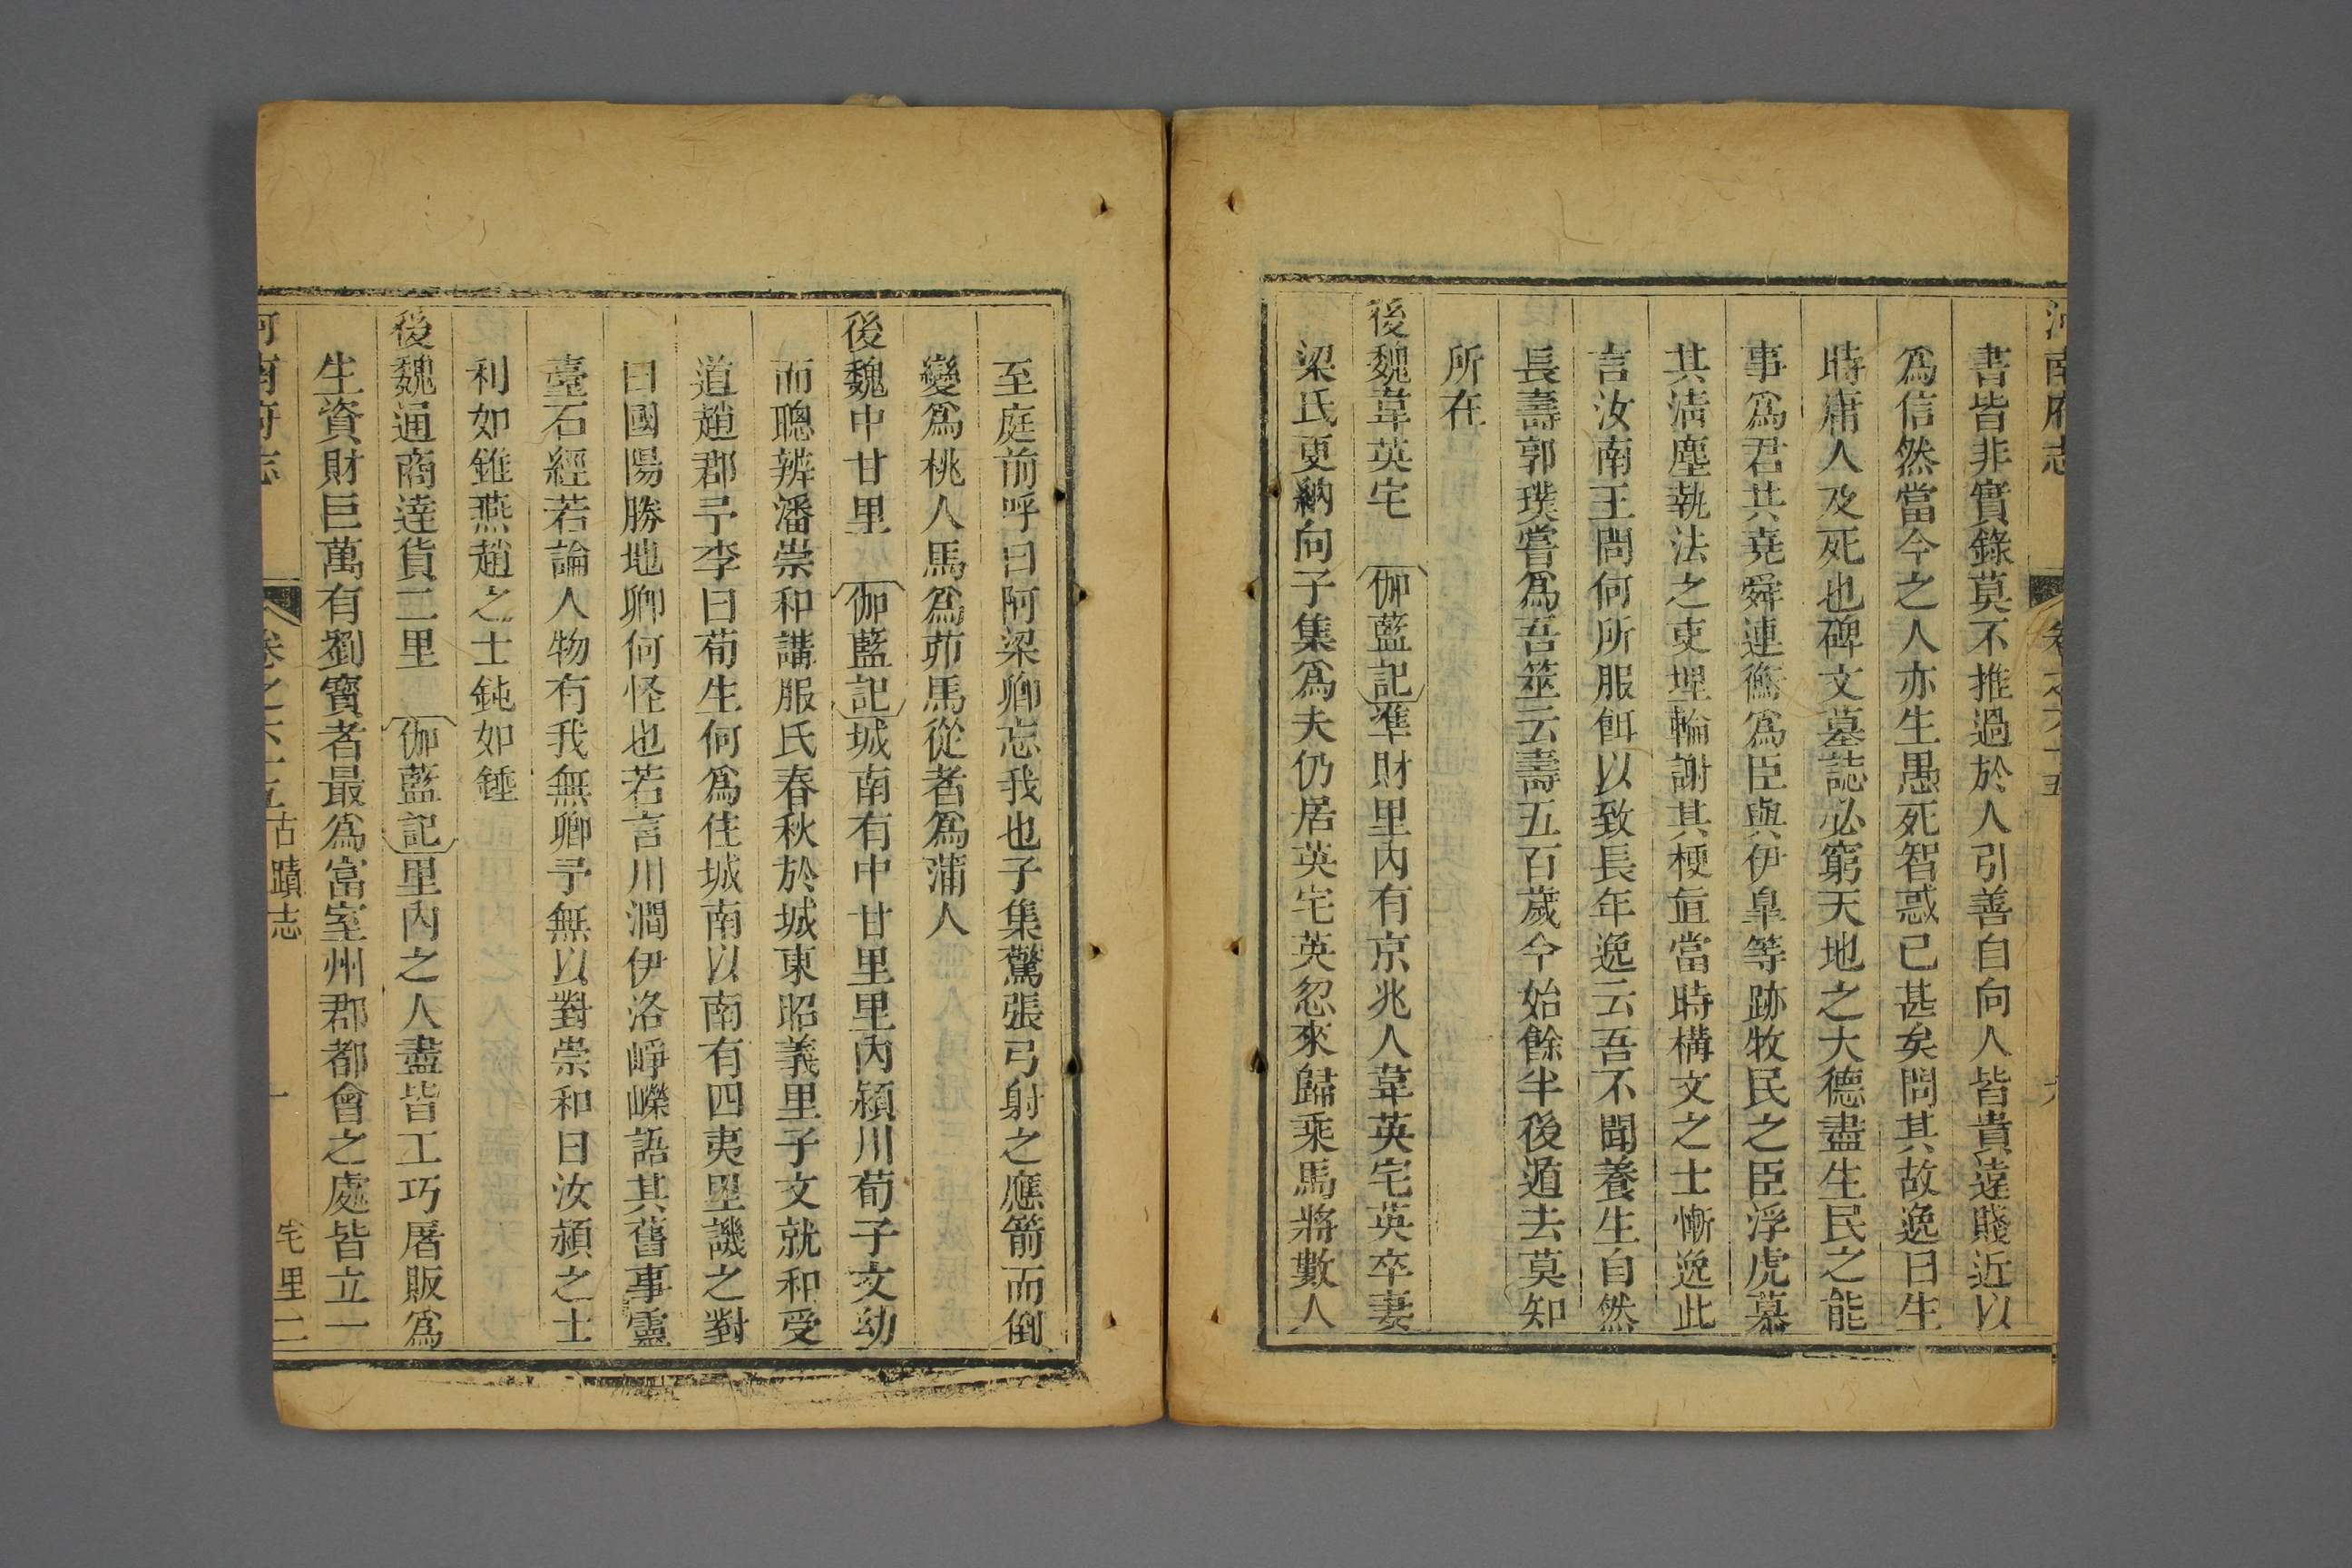 河南府志 卷之六十五 六
書皆非實錄莫不推過於人引善自向人皆貴遠賤近以
爲信然當今之人亦生愚死智惑已甚矣問其故逸曰生
時庸人及死也碑文墓誌必窮天地之大德盡生民之能
事爲君共堯舜連衡爲臣與伊臯等跡牧民之臣浮虎慕
其清塵執法之吏埋輪謝其梗直當時構文之士慚逸此
言汝南王問何所服餌以致長年逸云吾不聞養生自然
長壽郭璞嘗爲吾筮云壽五百歲今始餘半後遁去莫知
所在
後魏韋英宅 伽藍記準財里內有京兆人韋英宅英卒妻
梁氏更納向子集爲夫仍居英宅英忽來歸乘馬將數人
至庭前呼曰阿梁卿忘我也子集驚張弓射之應箭而倒
變爲桃人馬爲茆馬從者爲蒲人
後魏中甘里 伽藍記城南有中甘里里內潁川荀子文幼
而聰辨潘崇和講服氏春秋於城東昭義里子文就和受
道趙郡予李曰荀生何爲住城南以南有四夷里譏之對
曰國陽勝地卿何怪也若言川澗伊洛崢嶸語其舊事靈
臺石經若論人物有我無卿予無以對崇和曰汝潁之士
利如錐燕趙之士鈍如錘
後魏通商達貨二里 伽藍記里內之人盡皆工巧屠販爲
生資財巨萬有劉寶者最爲富室州郡都會之處皆立一
河南府志 卷之六十五 古蹟志 宅里二